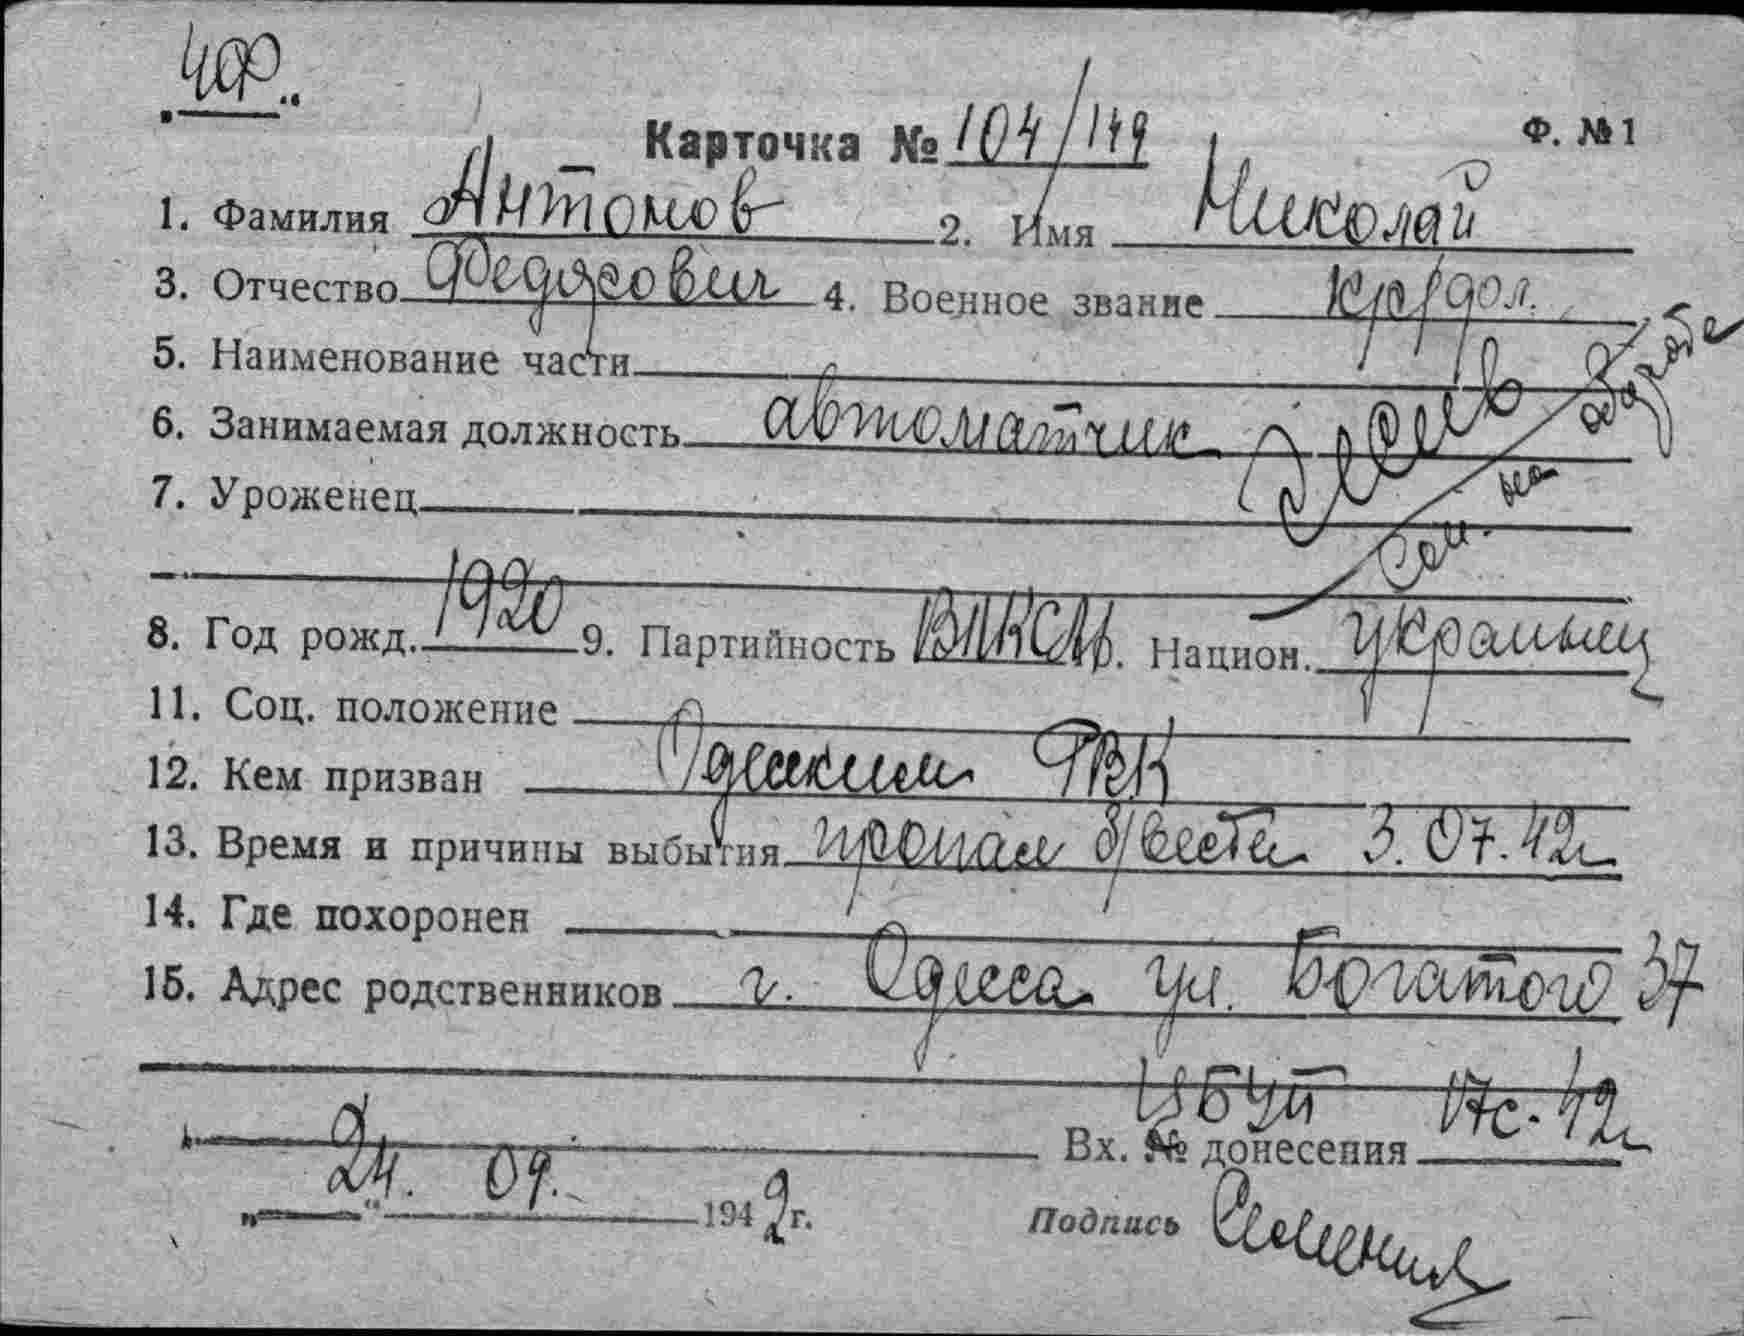 ЧФ.
Карточка № 104/149 Ф. № 1
1. Фамилия Антонов 2. Имя Николай
3. Отчество 4. Военное звание кр/фл.
5. Наименование части
6. Занимаемая должность автоматчик
7. Уроженец
См. на обороте
8. Год рожд. 1920 9. Партийность ВЛКСМ. Национ. украинец
11. Соц. положение
12. Кем призван Одесским РВК
13. Время и причины выбытия пропал б/вести 3.07.42г
14. Где похоронен
15. Адрес родственников г. Одесса ул. Богатого 37
Вх. № донесения ЦБУП 17с-42г
„24." 09. 1942г. Подпись